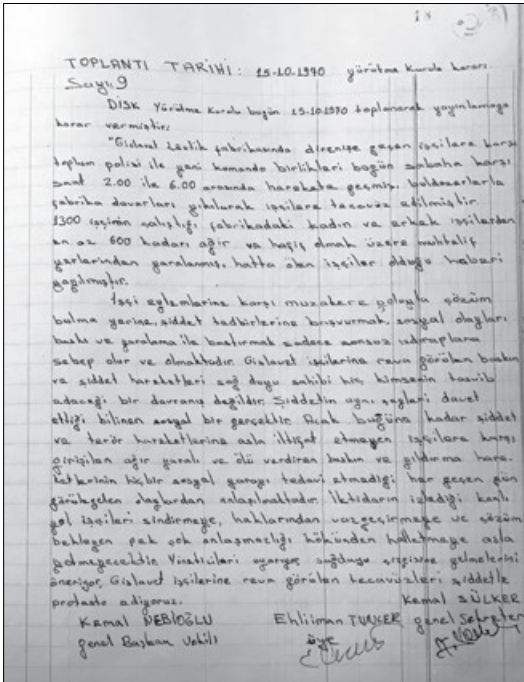 18
TOPLANTI TARİHİ: 15-10-1970 yürütme Kurulu kararı
Sayı: 9
DİSK Yürütme Kurulu bugün 15-10-1970 toplanarak yayınlamaya
karar vermiştir:
"Gislavet Lastik fabrikasında direnişe geçen işçilere karşı
toplum polisi ile yeni komando birlikleri bugün sabaha karşı
saat 2.00 ile 6.00 arasında harekata geçmiş, buldozerlerle
fabrika duvarları yıkılarak işçilere tecavüz edilmiştir.
1300 işçinin çalıştığı fabrikadaki kadın ve erkek işçilerden
en az 600 kadarı ağır ve hafif olmak üzere muhtelif
yerlerinden yaralanmış, hatta ölen işçiler olduğu haberi
yayılmıştır.
İşçi eylemlerine karşı müzakere yoluyla çözüm
bulma yerine, şiddet tedbirlerine başvurmak, sosyal olayları
baskı ve yaralama ile bastırmak sadece sonsuz ızdıraplara
sebep olur ve olmaktadır. Gislavet işçilerine reva görülen baskın
ve şiddet hareketleri sağ duyu sahibi hiç kimsenin tasvib
edeceği bir davranış değildir. Şiddetin aynı şeyleri davet
ettiği bilinen sosyal bir gerçektir. Ancak bugüne kadar şiddet
ve terör hareketlerine asla iltifat etmeyen işçilere karşı
girişilen ağır yaralı ve ölü verdiren baskın ve yıldırma hare-
ketlerinin hiçbir sosyal yarayı tedavi etmediği her geçen gün
görülegelen olaylardan anlaşılmaktadır. İktidarın izlediği kanlı
yol işçileri sindirmeye, haklarından vazgeçirmeye ve çözüm
bekleyen pek çok anlaşmazlığı kökünden halletmeye asla
yetmeyecektir. Yöneticileri uyarıyor, sağduyu çizgisine gelmelerini
öneriyor, Gislavet işçilerine reva görülen tecavüzleri şiddetle
protesto ediyoruz.
Kemal SÜLKER
Kemal NEBİOĞLU Ehliiman TUNCER genel Sekreter
genel Başkan Vekili üye